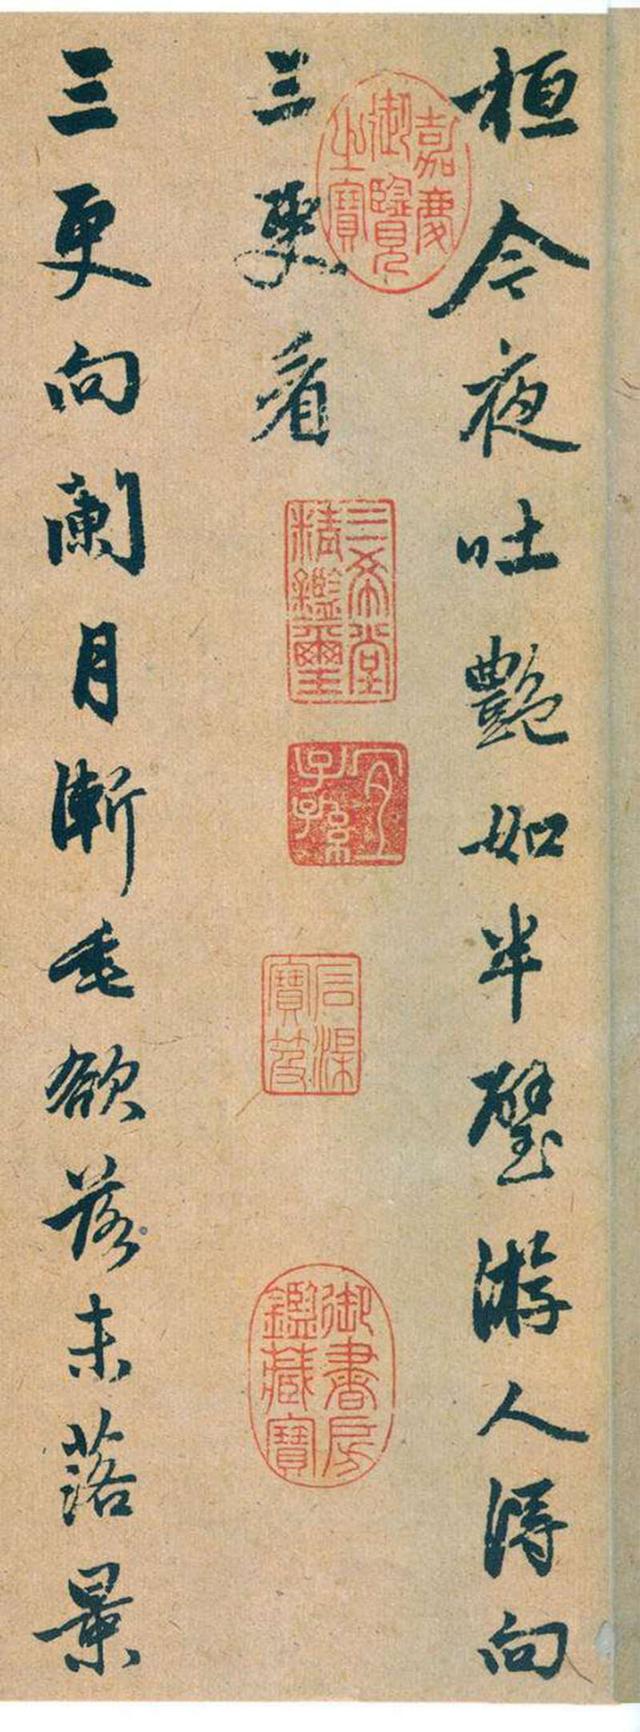 桓今夜吐艷如半璧游人得向
三更看
嘉慶
御覽
之寶
三希堂
精鑑璽
宜
子孫
石渠
寶笈
御書房
鑑藏寶
三更向闌月漸垂欲落未落景